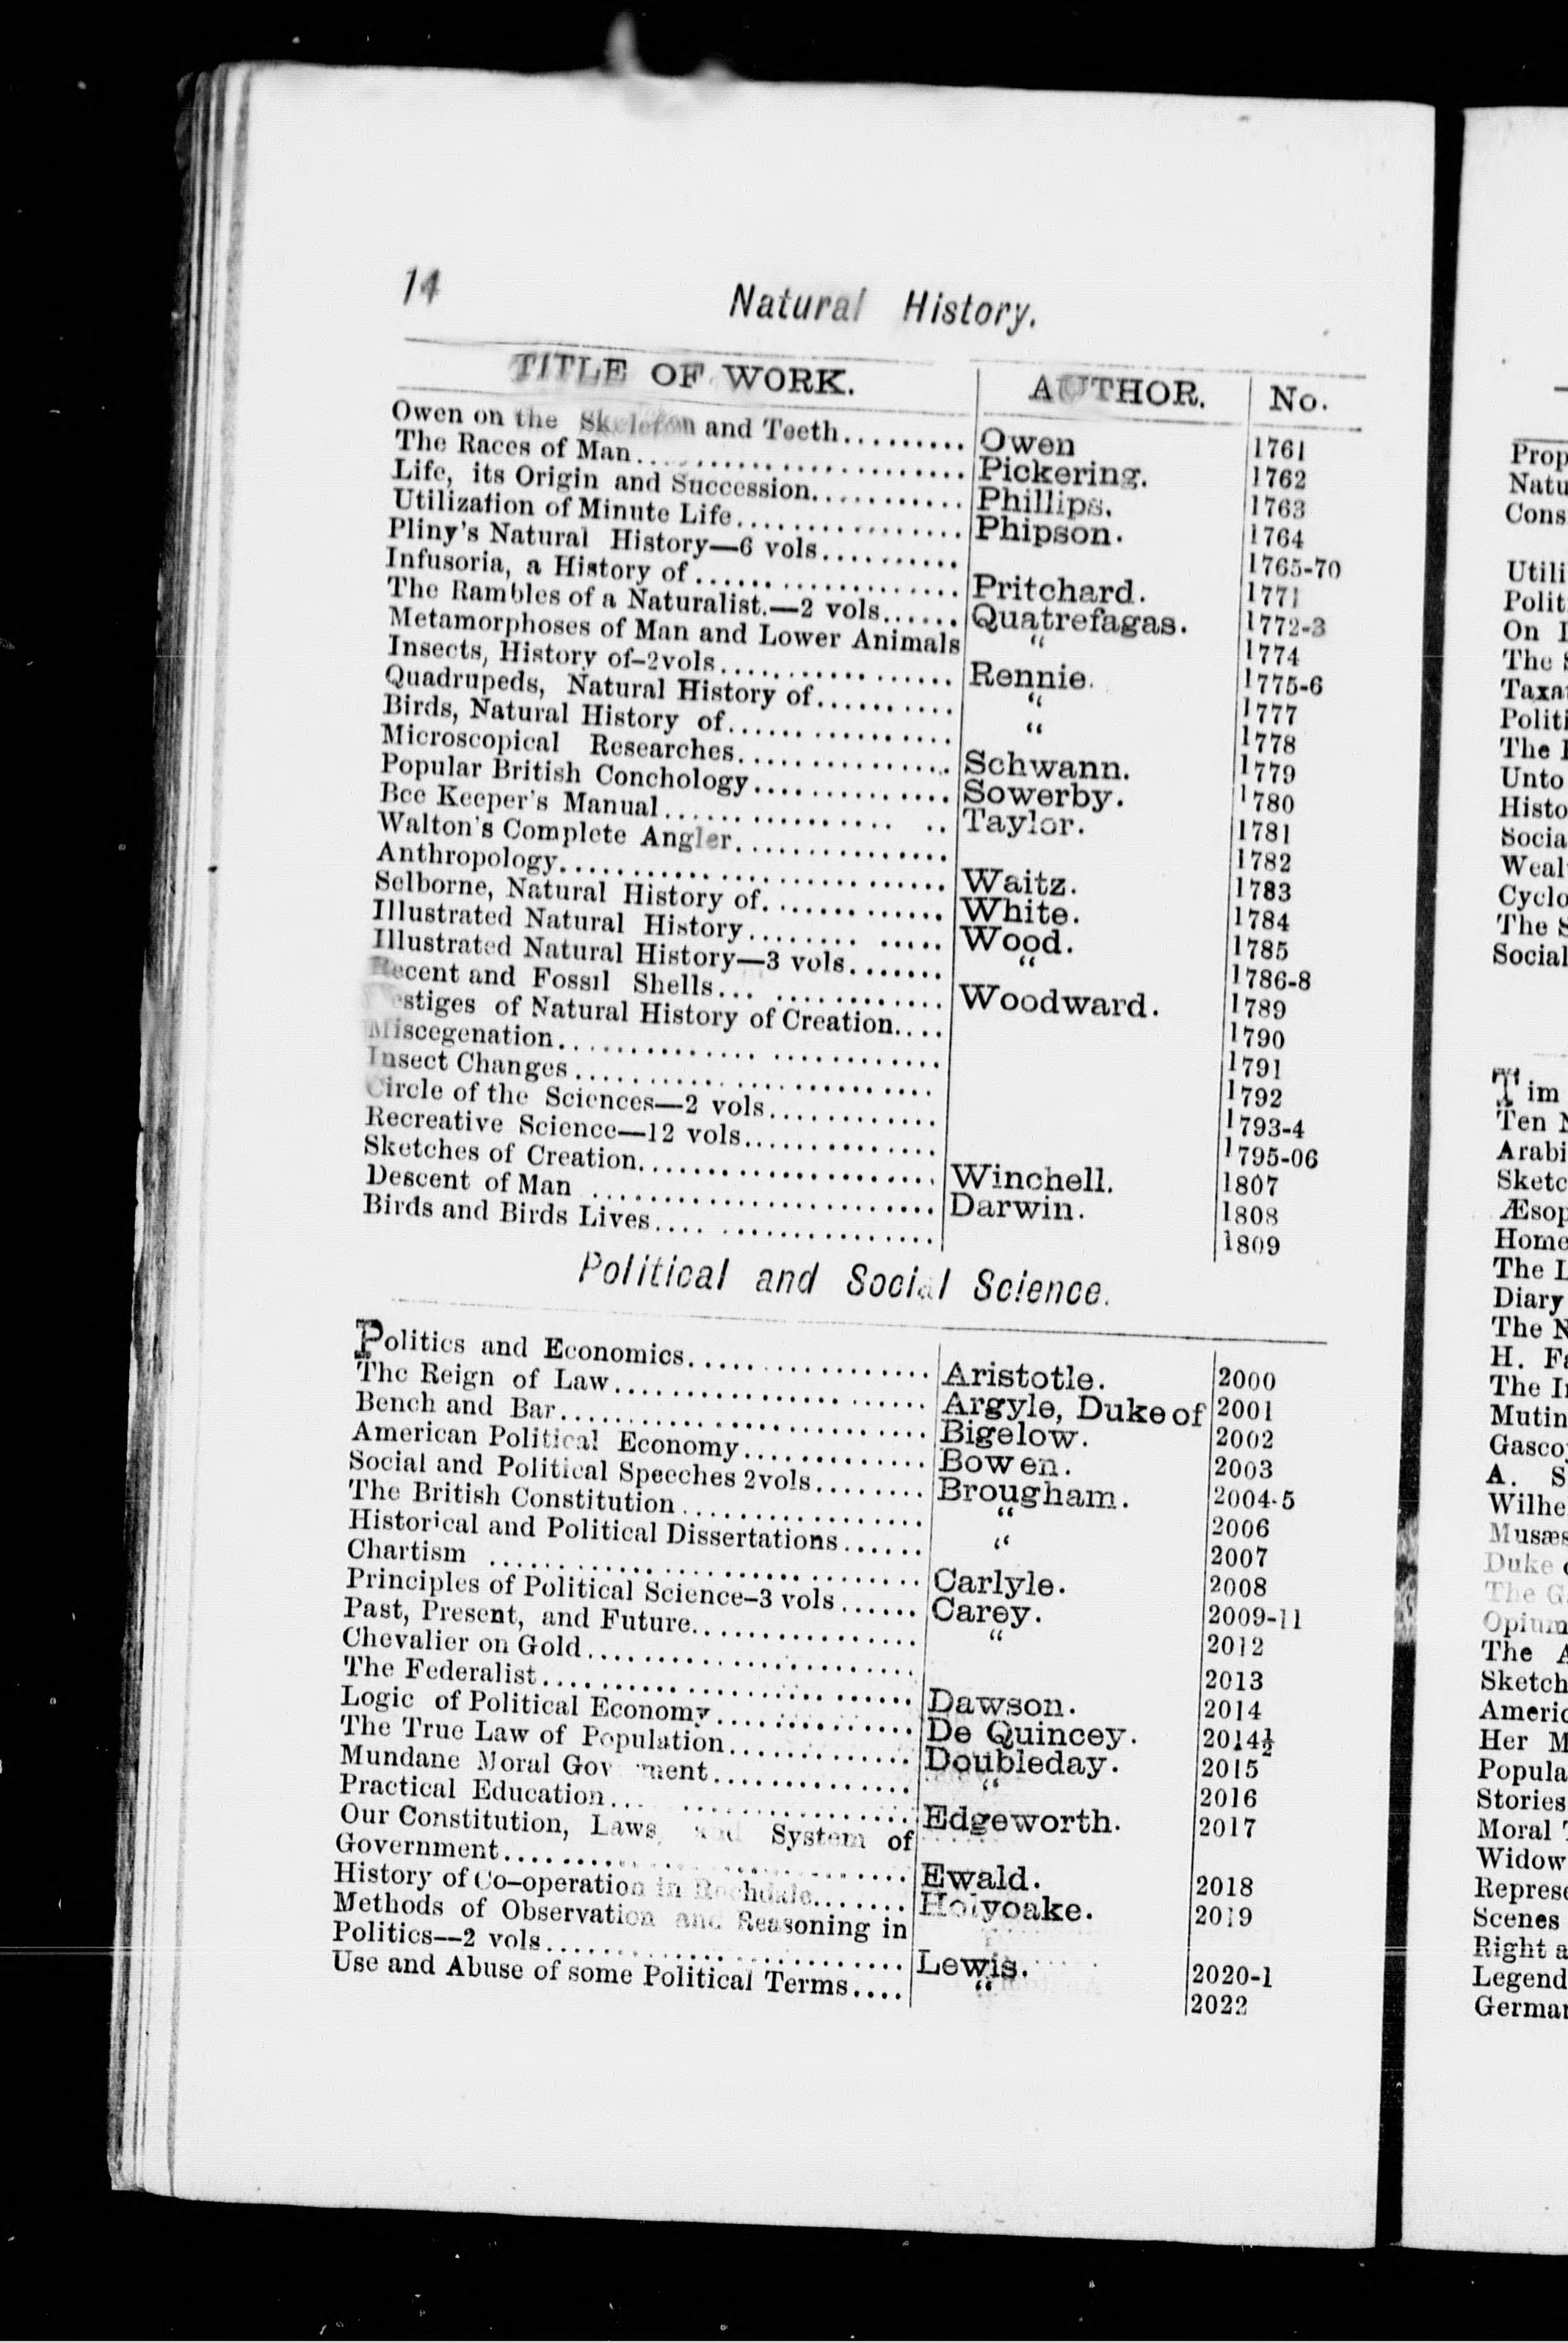 14
Natural History.
TITLE OF WORK. AUTHOR. No.
Owen on the Skeleton and Teeth......... Owen 1761
The Races of Man........................ Pickering. 1762
Life, its Origin and Succession............ Phillips. 1763
Utilization of Minute Life................. Phipson. 1764
Pliny's Natural History—6 vols........... 1765-70
Infusoria, a History of.................... Pritchard. 1771
The Rambles of a Naturalist.—2 vols...... Quatrefagas. 1772-3
Metamorphoses of Man and Lower Animals “ 1774
Insects, History of–2vols.................. Rennie. 1775-6
Quadrupeds, Natural History of.......... “ 1777
Birds, Natural History of................. “ 1778
Microscopical Researches................ Schwann. 1779
Popular British Conchology............... Sowerby. 1780
Bee Keeper's Manual................. .. Taylor. 1781
Walton's Complete Angler................ 1782
Anthropology............................. Waitz. 1783
Selborne, Natural History of............. White. 1784
Illustrated Natural History........ ..... Wood. 1785
Illustrated Natural History—3 vols....... “ 1786-8
Recent and Fossil Shells... ............. Woodward. 1789
stiges of Natural History of Creation.... 1790
Miscegenation............................ 1791
Insect Changes........................... 1792
Circle of the Sciences—2 vols............. 1793-4
Recreative Science—12 vols............... 1795-06
Sketches of Creation....................... Winchell. 1807
Descent of Man .......................... Darwin. 1808
Birds and Birds Lives.... ................ 1809
Political and Social Science.
Politics and Economics................... Aristotle. 2000
The Reign of Law........................ Argyle, Duke of 2001
Bench and Bar............................ Bigelow. 2002
American Political Economy.............. Bowen. 2003
Social and Political Speeches 2vols........ Brougham. 2004-5
The British Constitution................... “ 2006
Historical and Political Dissertations...... “ 2007
Chartism ................................ Carlyle. 2008
Principles of Political Science–3 vols...... Carey. 2009-11
Past, Present, and Future................. “ 2012
Chevalier on Gold......................... 2013
The Federalist............................ Dawson. 2014
Logic of Political Economy............... De Quincey. 2014½
The True Law of Population.............. Doubleday. 2015
Mundane Moral Gov ment............... “ 2016
Practical Education... .................. Edgeworth. 2017
Our Constitution, Laws and System of
Government............................. Ewald. 2018
History of Co–operation in Rochdale....... Holyoake. 2019
Methods of Observation and Reasoning in
Politics—2 vols........................... Lewis. 2020-1
Use and Abuse of some Political Terms.... “ 2022
Prop
Natu
Cons
Utili
Polit
On I
The S
Taxa
Politi
The
Unto
Histo
Socia
Weal
Cyclo
The S
Social
Tim
Ten N
Arabi
Sketc
Æsop
Home
The L
Diary
The N
H. Fa
The I
Mutin
Gasco
A. S
Wilhe
Musæs
Duke
The G
Opium
The A
Sketch
Americ
Her M
Popula
Stories
Moral
Widow
Represe
Scenes
Right a
Legend
German